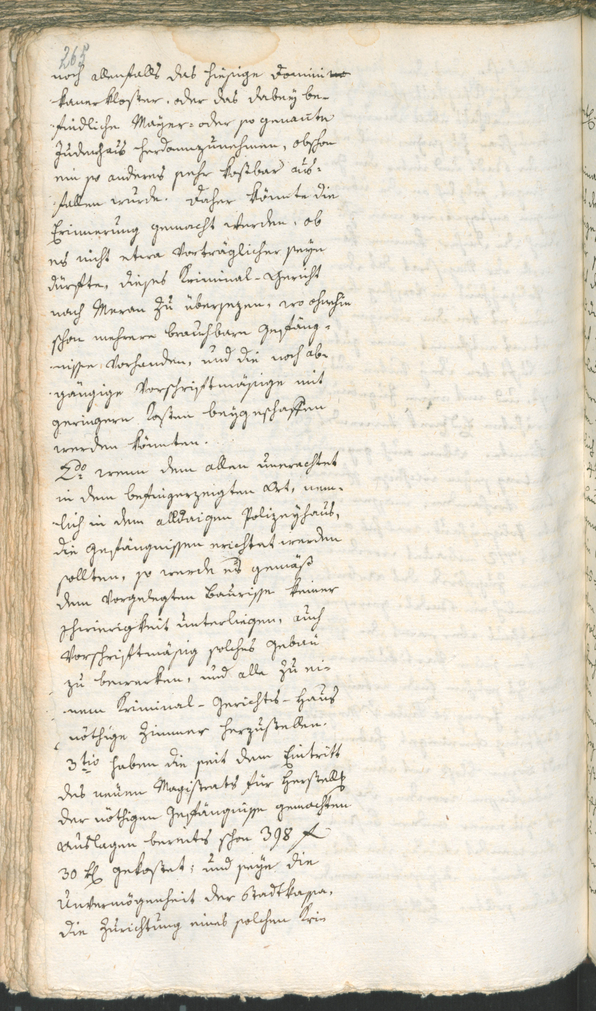 265
noch allenfalls das hiesige Domini¬
kanerkloster, oder das dabey be¬
findliche Mayer- oder so genante
Judenhaus herdannzunehmen, obschon
ein so anderes sehr kostbar aus¬
fallen wurde. Daher könnte die
Erinnerung gemacht werden, ob
es nicht etwa vorträglicher seyn
dürfte, dieses Kriminal-Gericht
nach Meran zu übersezen, wo ohnehin
schon mehrere brauchbare Gefäng¬
nisse vorhanden, und die noch ab¬
gängige vorschriftmäsige mit
geringern Kosten beygeschaffen
werden könnten.
2do wenn dem allen unerachtet
in dem befingerzeigten Ort, nem¬
lich in dem alldaigen Polizeyhaus,
die Gefängnissen erichtet werden
sollten, so werde es gemäß
dem vorgelegten Baurisse keiner
Schwierigkeit unterliegen, auch
vorschriftmäsig solches Gebäu
zu bewerken, und alle zu ei¬
nem Kriminal-Gerichts-Haus
nöthige Zimmer herzustellen.
3tio haben die seit dem Eintritt
des neuen Magistrats für Herstellg
der nöthigen Gefängnisse gemachten
Auslagen bereits schon 398 f
30 x gekostet; und seye die
Unvermögenheit der Stadtkassa,
die Zurichtung eines solchen Kri¬